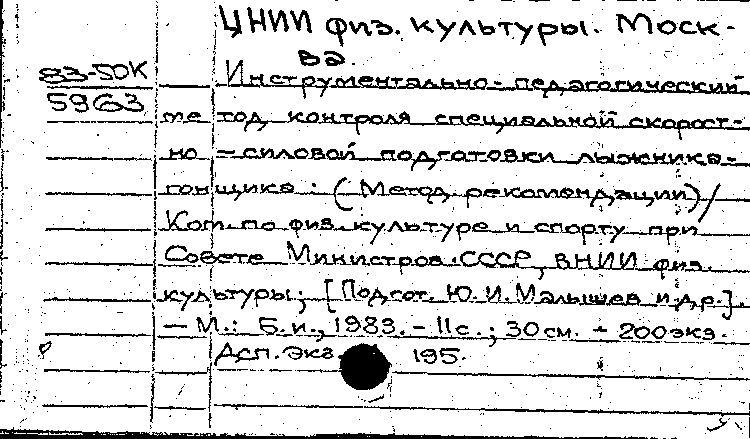 ЦНИИ физ. культуры. Моск-
ва.
83-50К
Инструментально-педагогический
5963
ме тод контроля специальной скорост-
но -силовой подготовки лыжника-
гонщика : (Метод. рекомендации)/
Ком. по физ. культуре и спорту при
Совете Министров СССР, ВНИИ физ.
культуры; [Подгот. Ю.И. Малышев и др.].
— М.: Б.и., 1983. - 11с.; 30см. - 200экз.
Дсп. Экз. 195.